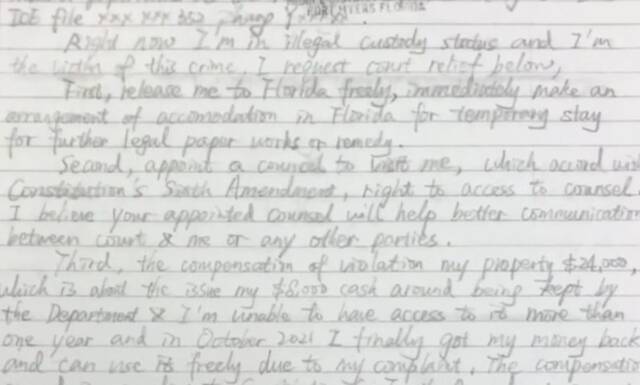 ICE file xxx xxx 352
MYERS FLORIDA
Right now I'm in illegal custody status and I'm
the victim of this crime, I request court relief below,
First, release me to Florida freely, immediately make an
arrangement of accomodation in Florida for temporary stay
for further legal paper works or remedy.
Second, appoint a councel to visit me, which accord wit
Constitution's Sixth Amendment, right to access to counsel.
I believe your appointed counsel will help better communication
between court & me or any other parties.
Third, the compensation of violation my property $24,000,
which is about the issue my $8,000 cash around being kept by
the Department & I'm unable to have access to it more than
one year and in October 2021 I finally got my money back
and can use it freely due to my complaint. The compensatio